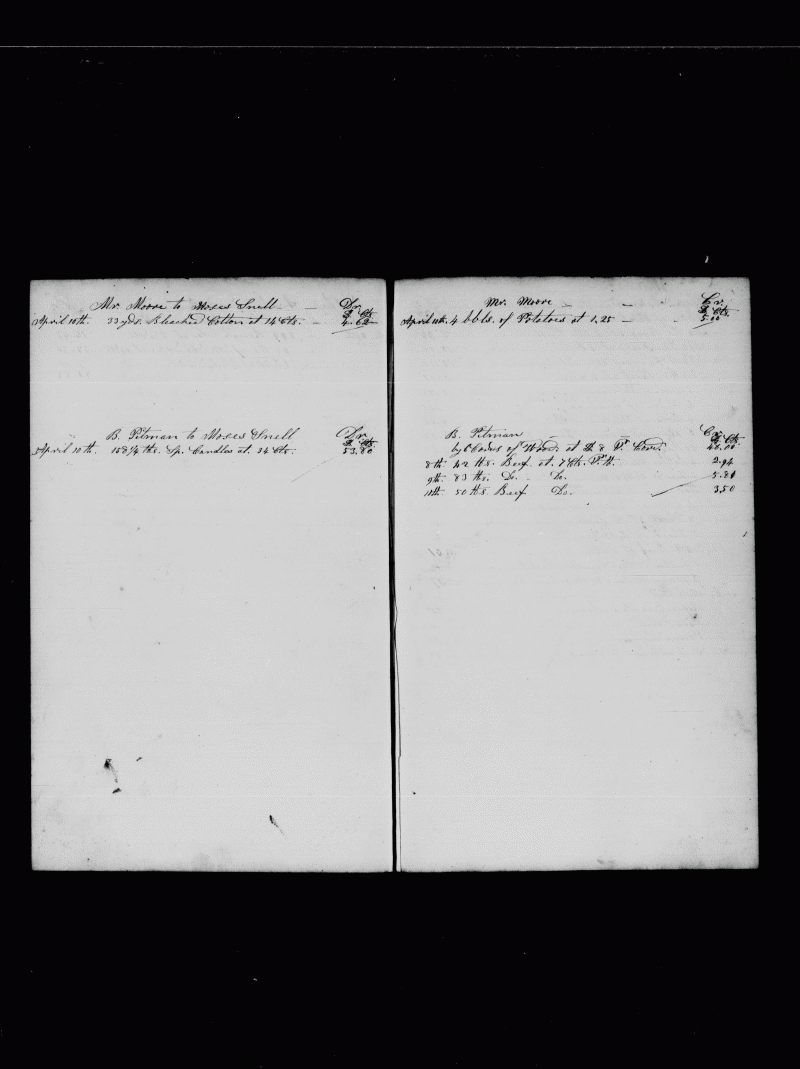 Mr. Moore to Moses Snell — Dr.
$ Cts
April 10th. 33 yds. Bleached Cotton at 14 Cts. — 4.62
B. Pitman to Moses Snell Dr.
$ Cts
April 10th. 158 1/4 lbs. Sp. Candles at 34 Cts. 53.80
Mr. Moore — Cr.
$ Cts.
April 10th. 4 bbls. of Potatoes at 1.25 — 5.00
B. Pitman — Cr.
$ Cts
by Cords of Wood at $ 8 Pr. 48.00
8th. 42 lbs. Beef at 7 Cts. Pr. lb. 2.94
9th. 83 lbs. Do. Do. 5.81
11th. 50 lbs. Beef Do. 3.50